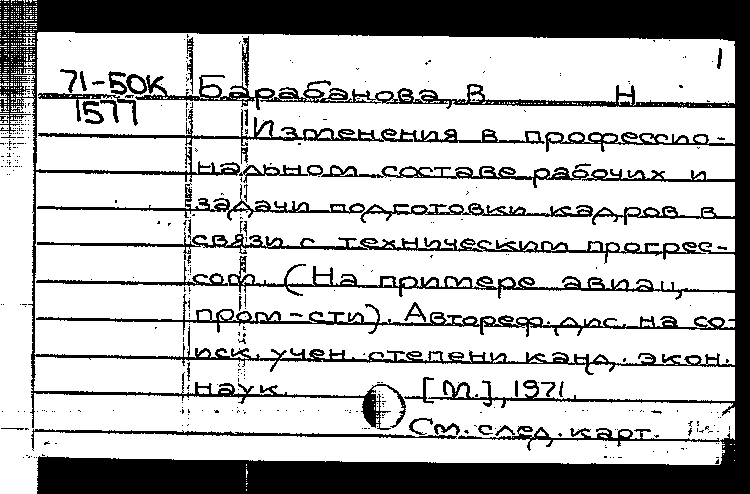 1
71-50К Барабанова, В Н
1577
Изменения в профессио-
нальном составе рабочих и
задачи подготовки кадров в
связи с техническим прогрес-
сом. (На примере авиац.
пром-сти). Автореф. дис. на со-
иск. учен. степени канд. экон.
наук. [М.], 1971.
См. след. карт.